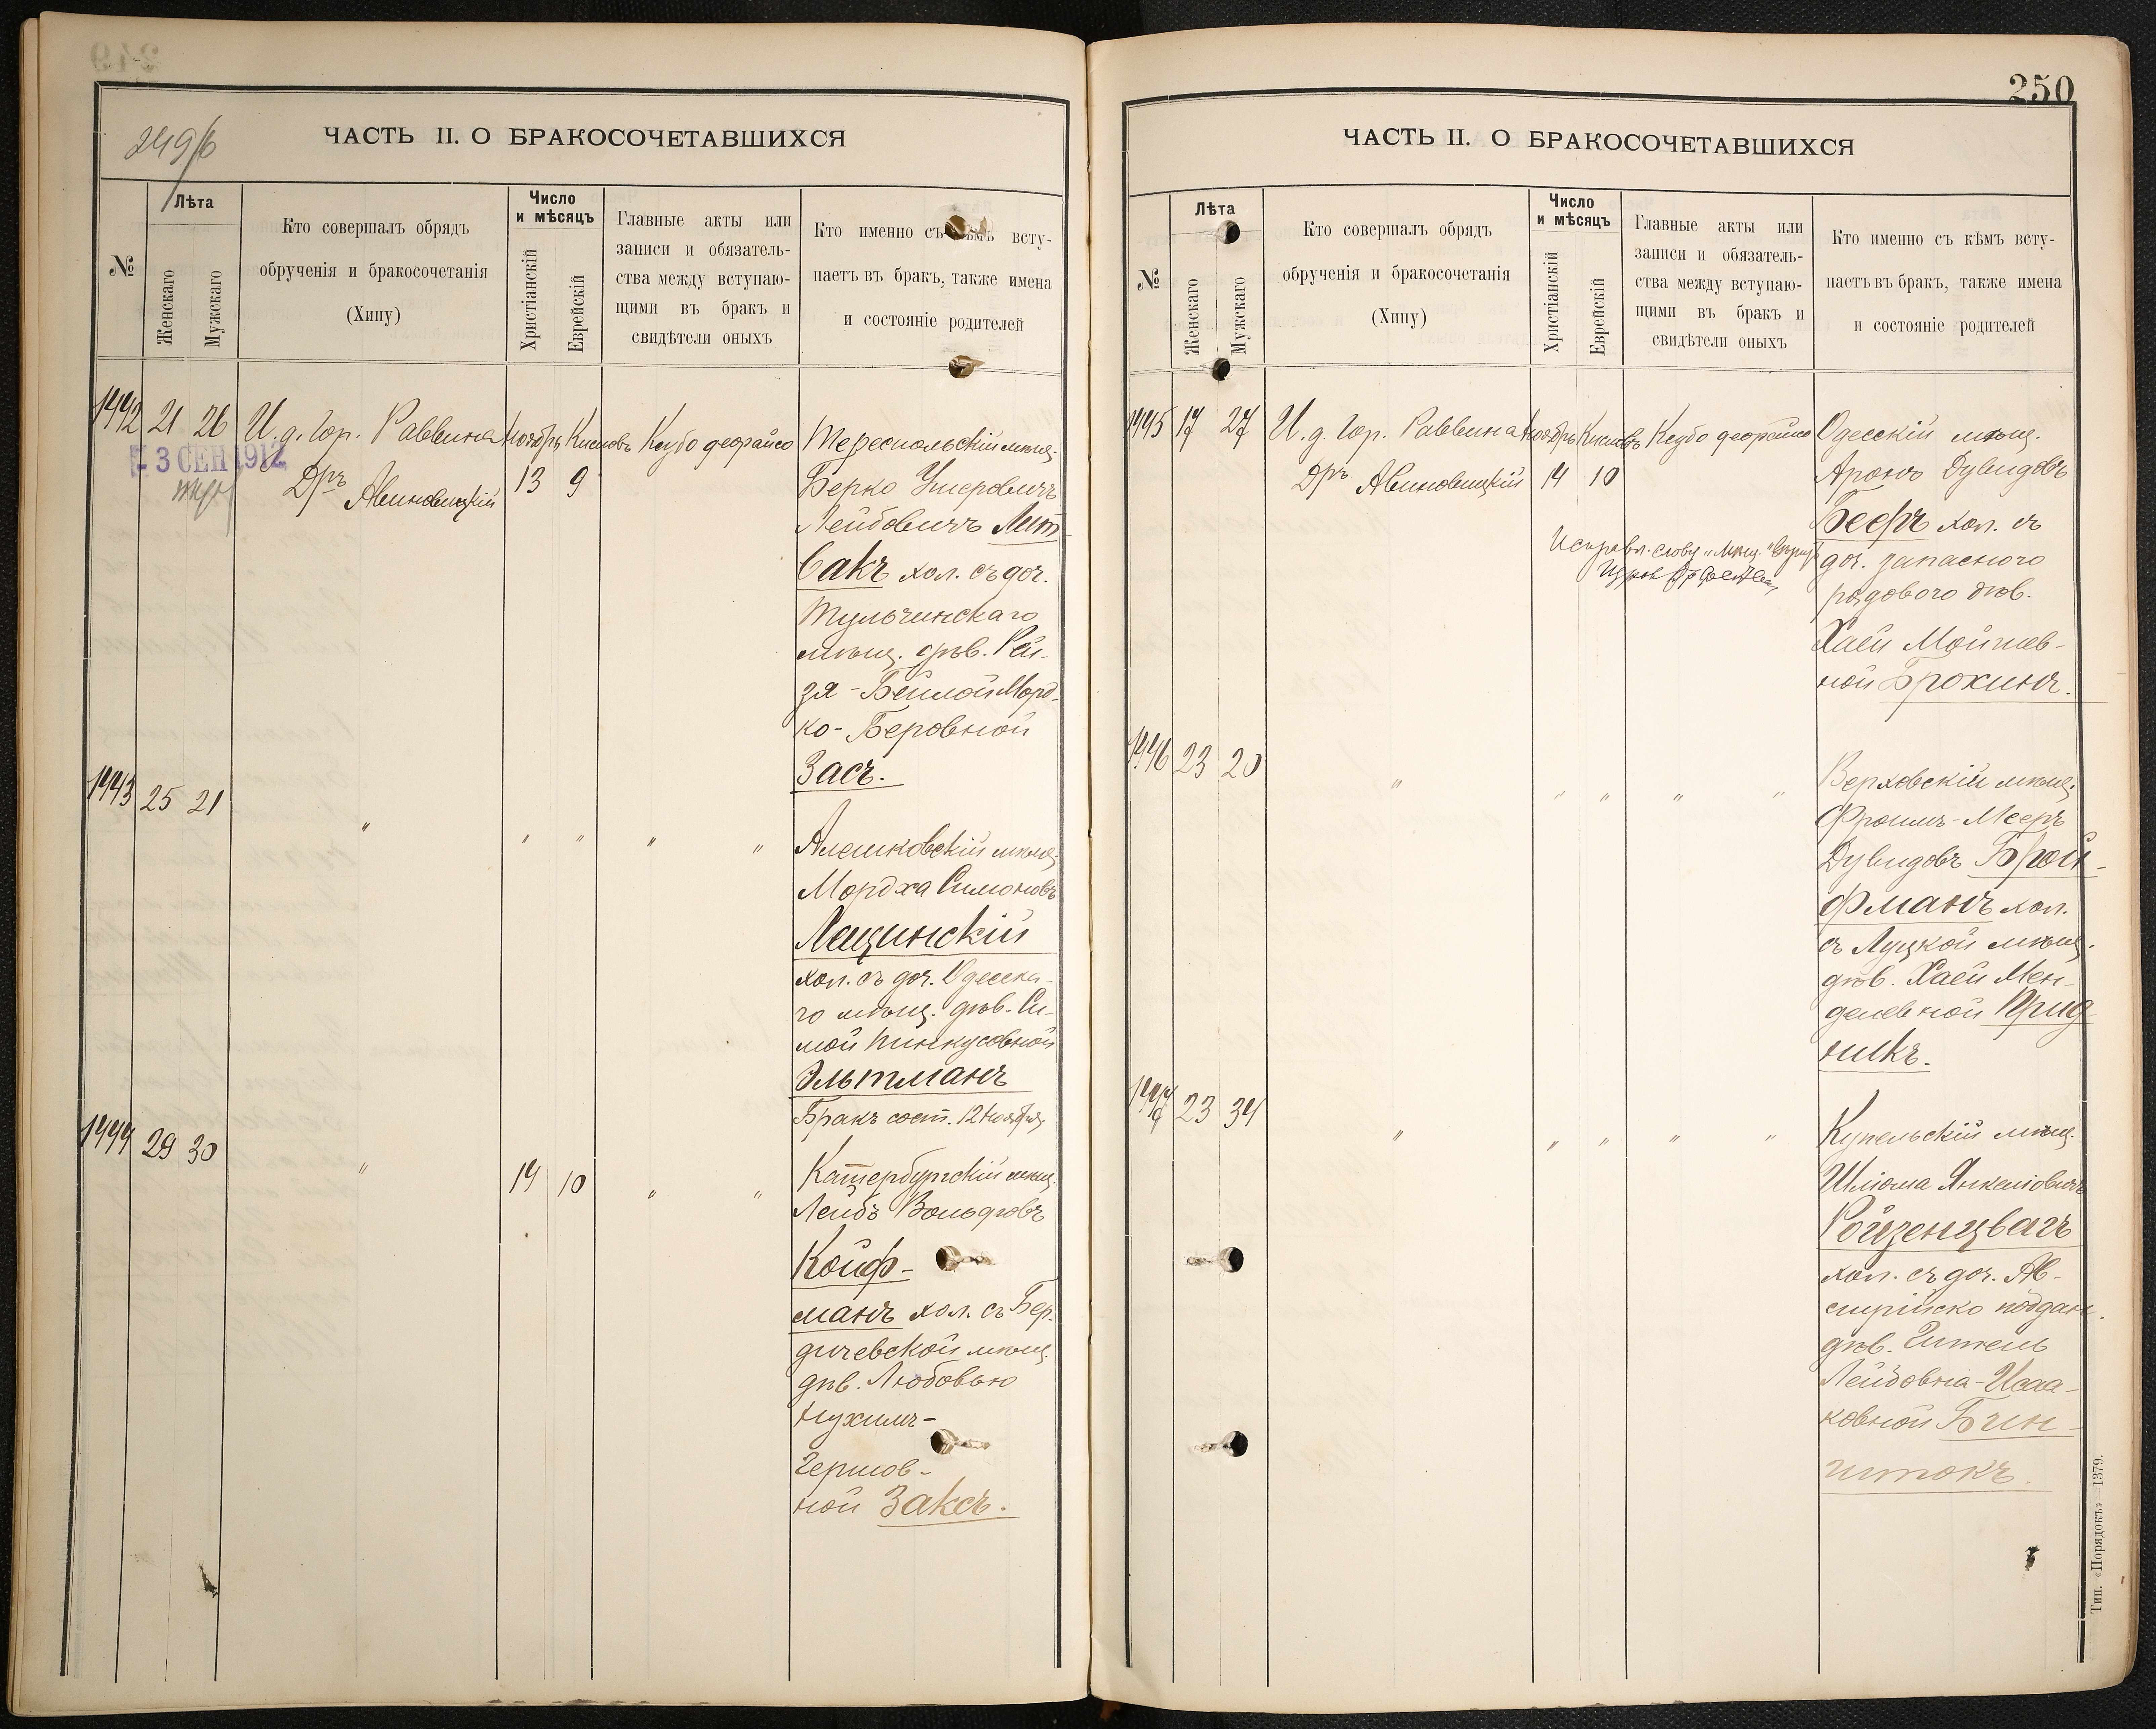 249/б
ЧАСТЬ II. О БРАКОСОЧЕТАВШИХСЯ
№
Лѣта
Женскаго
Мужскаго
Кто совершалъ обрядъ
обрученія и бракосочетанія
(Хипу)
Число
и мѣсяцъ
Христіанскій
Еврейскій
Главные акты или
записи и обязатель-
ства между вступаю-
щими въ бракъ и
свидѣтели оныхъ
Кто именно съ кѣмъ всту-
паетъ въ бракъ, также имена
и состояніе родителей
1442 21 26 И. д. Гор. Раввина Ноябрь Кислевъ Кедбо деорайсо
- 3 СЕН 1912
Дръ Авиновицкій 13 9
Тереспольскій мѣщ.
Берко Умеровичъ
Лейбовичъ Лит-
вакъ хол. съ доч.
Тульчинскаго
мѣщ. дѣв. Рей-
зя-Бейлой Морд-
ко-Беровной
Засъ.
1443 25 21 " " " " "
Алешковскій мѣщ.
Мордха Симоновъ
Лещинскій
хол. съ доч. Одесска-
го мѣщ. дѣв. Си-
мой Пинкусовной
Эльтманъ
Бракъ сост. 12 Ноября
1444 29 30 " 14 10 " "
Катербургскій мѣщ.
Лейбъ Вольфовъ
Койф-
манъ хол. съ Бер-
дичевской мѣщ.
дѣв. Любовью
Нухимъ-
Гершов-
ной Заксъ.
250
ЧАСТЬ II. О БРАКОСОЧЕТАВШИХСЯ
№
Лѣта
Женскаго
Мужскаго
Кто совершалъ обрядъ
обрученія и бракосочетанія
(Хипу)
Число
и мѣсяцъ
Христіанскій
Еврейскій
Главные акты или
записи и обязатель-
ства между вступаю-
щими въ бракъ и
свидѣтели оныхъ
Кто именно съ кѣмъ всту-
паетъ въ бракъ, также имена
и состояніе родителей
1445 17 27 И. д. Гор. Раввина Ноябрь Кислевъ Кедбо деорайсо
Дръ Авиновицкій 14 10
Исправл. слову „Мѣщ."
Одесскій мѣщ.
Аронъ Дувидовъ
Бееръ хол. съ
доч. запасного
рядового дѣв.
Хаей Мойшев-
ной Брохинъ.
1446 23 20 " " " " "
Верховскій мѣщ.
Фроимъ-Мееръ
ДувидовъБрон-
фманъ хол.
съ Луцкой мѣщ.
дѣв. Хаей Мен-
делевной Прид-
никъ.
1447 23 34 " " " " "
Купельскій мѣщ.
Шлюма Янкелевичъ
Ройзенцвагъ
хол. съ доч. Ав-
стрійско поддан.
дѣв. Гитель
Лейбовна-Исаа-
ковной Бин-
штокъ.
Тип. «Порядокъ»—1379.